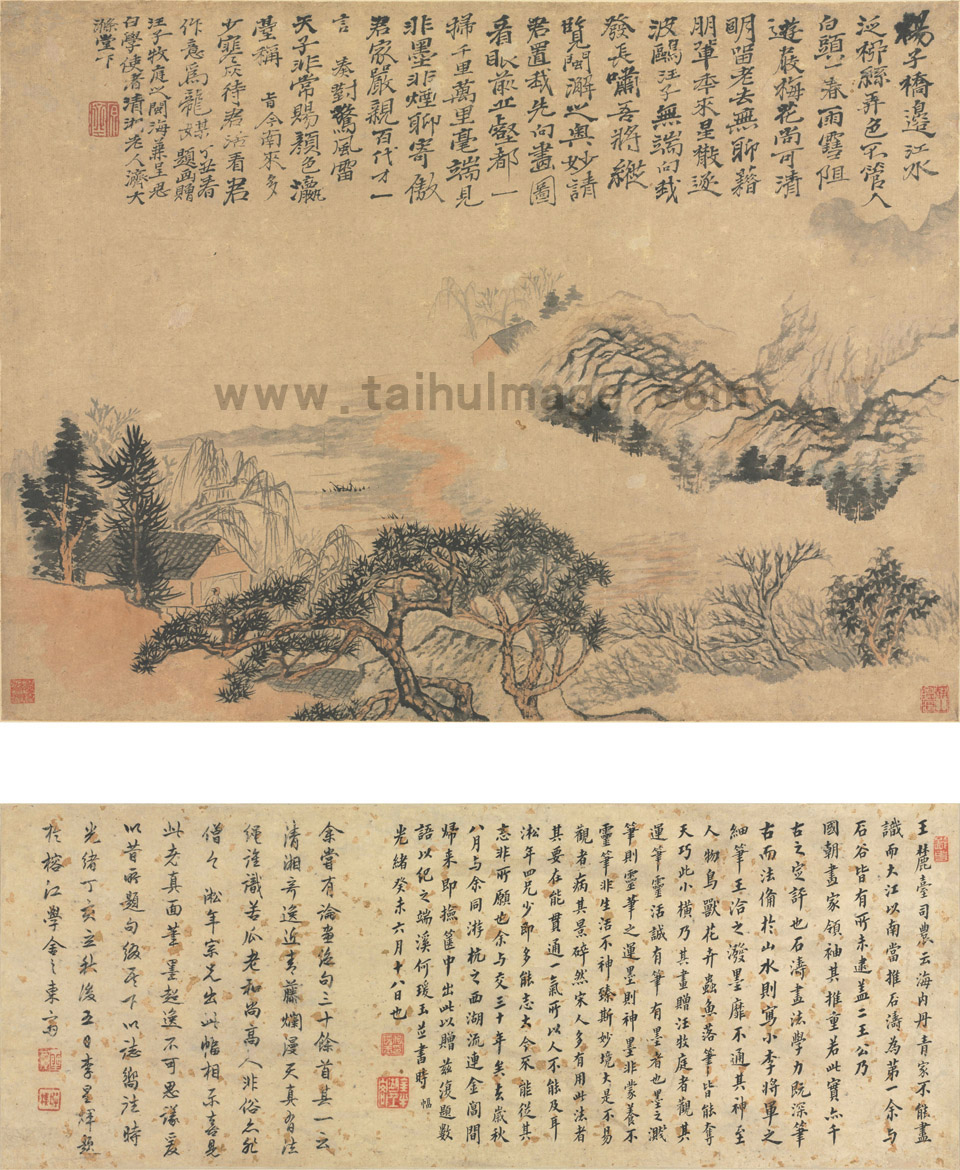 楊子橋邊江水
泛柳絲弄色不管人
白頭一春雨雪阻
遊屐梅花尚可清
明留老去無聊藉
朋輩本來星散逐
波鷗汪子無端向我
發長嘯吾將縱
覽閩海之奧妙請
君置我先向畫圖
看眼前丘壑都一
掃千里萬里毫端見
非墨非煙聊寄傲
君家嚴親百代才一
言奏對驚風雷
天子非常賜顏色瀛
臺稱旨今南來多
少寒灰待君活看君
作意為龍媒題畫贈
汪子牧庭之閩海兼呈思
白學使者清湘老人濟大
滌堂下
www.taihuImage.com
王麓臺司農云海內丹青家不能盡
識而大江以南當推石濤為第一余與
石谷皆有所未逮蓋二王公乃
國朝畫家領袖其推重若此實亦千
古之定評也石濤畫法學力既深筆
古而法備於山水則寫小李將軍之
細筆王洽之潑墨靡不通其神至
人物鳥獸花卉蟲魚落筆皆能奪
天巧此小橫乃其畫贈汪牧庭者觀其
運筆靈活誠有筆有墨者也墨之濺
筆則靈筆之運墨則神墨非蒙養不
靈筆非生活不神臻斯妙境大是不易
觀者病其景碎然宋人多有用此法者
其要在能貫通一氣所以人不能及耳
淞年四兄少即多能志大今不能從其
志非所願也余與交三十年矣去歲秋
八月與余同游杭之西湖流連金閶間
歸來即撿篋中出此以贈茲復題數
語以紀之端溪何瑗玉並書時幅
光緒癸未六月十八日也
余嘗有論畫絕句三十餘首其一云
清湘奇逸近青藤爛漫天真有法
繩誰識苦瓜老和尚高人非俗亦非
僧今淞年宗兄出此幅相示喜見
此老真面筆墨超逸不可思議爰
以昔所題句綴於下以誌嚮往時
光緒丁亥立秋後五日李星輝題
於榕江學舍之東齋